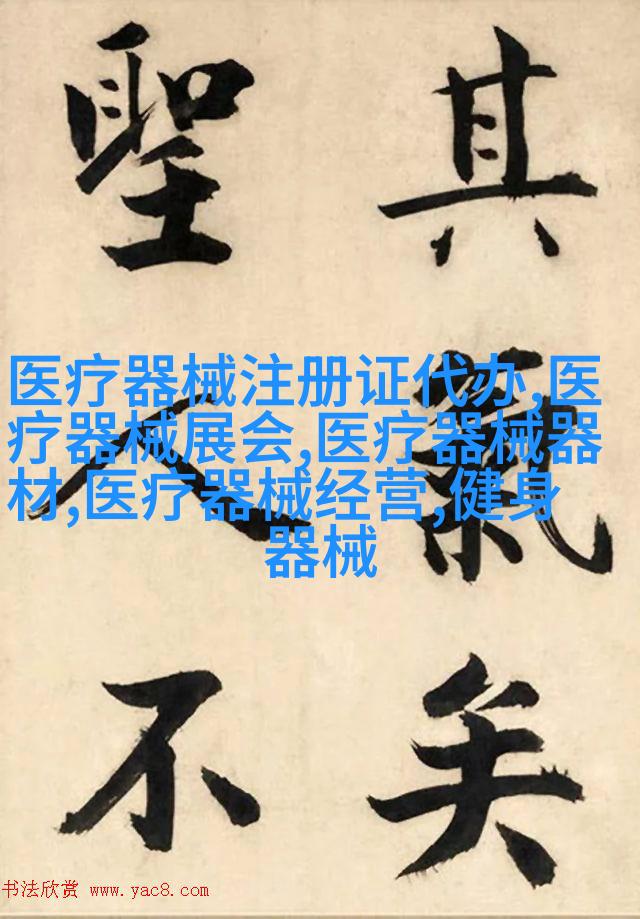 其氣矣
聖人不
医疗器械注册证代办,医
疗器械展会,医疗器械器
材,医疗器械经营,健身
器械
书法欣赏 www.yac8.com